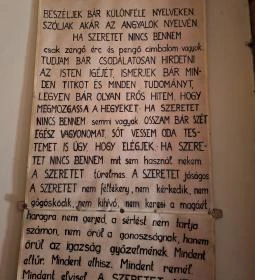 BESZÉLJEK BÁR KÜLÖNFÉLE NYELVEKEN
SZÓLJAK AKÁR AZ ANGYALOK NYELVÉN
HA SZERETET NINCS BENNEM
csak zengő érc és pengő cimbalom vagyok.
TUDJAM BÁR CSODÁLATOSAN HIRDETNI
AZ ISTEN IGÉJÉT, ISMERJEK BÁR MIN-
DEN TITKOT ÉS MINDEN TUDOMÁNYT,
LEGYEN BÁR OLYAN ERŐS HITEM, HOGY
MEGMOZGASSA A HEGYEKET. HA SZERETET
NINCS BENNEM semmi vagyok. OSSZAM BÁR SZÉT
EGÉSZ VAGYONOMAT, SŐT VESSEM ODA TES-
TEMET IS ÚGY, HOGY ELÉGJEK. HA SZERE-
TET NINCS BENNEM mit sem használ nekem.
A SZERETET türelmes. A SZERETET jóságos
A SZERETET nem féltékeny, nem kérkedik, nem
gőgösködik, nem kihívó, nem keresi a magáét,
haragra nem gerjed, a sértést nem tartja
számon, nem örül a gonoszságnak, hanem
örül az igazság győzelmének. Mindent
eltűr. Mindent elhisz. Mindent remél.
Mindent elvisel. A SZERETET